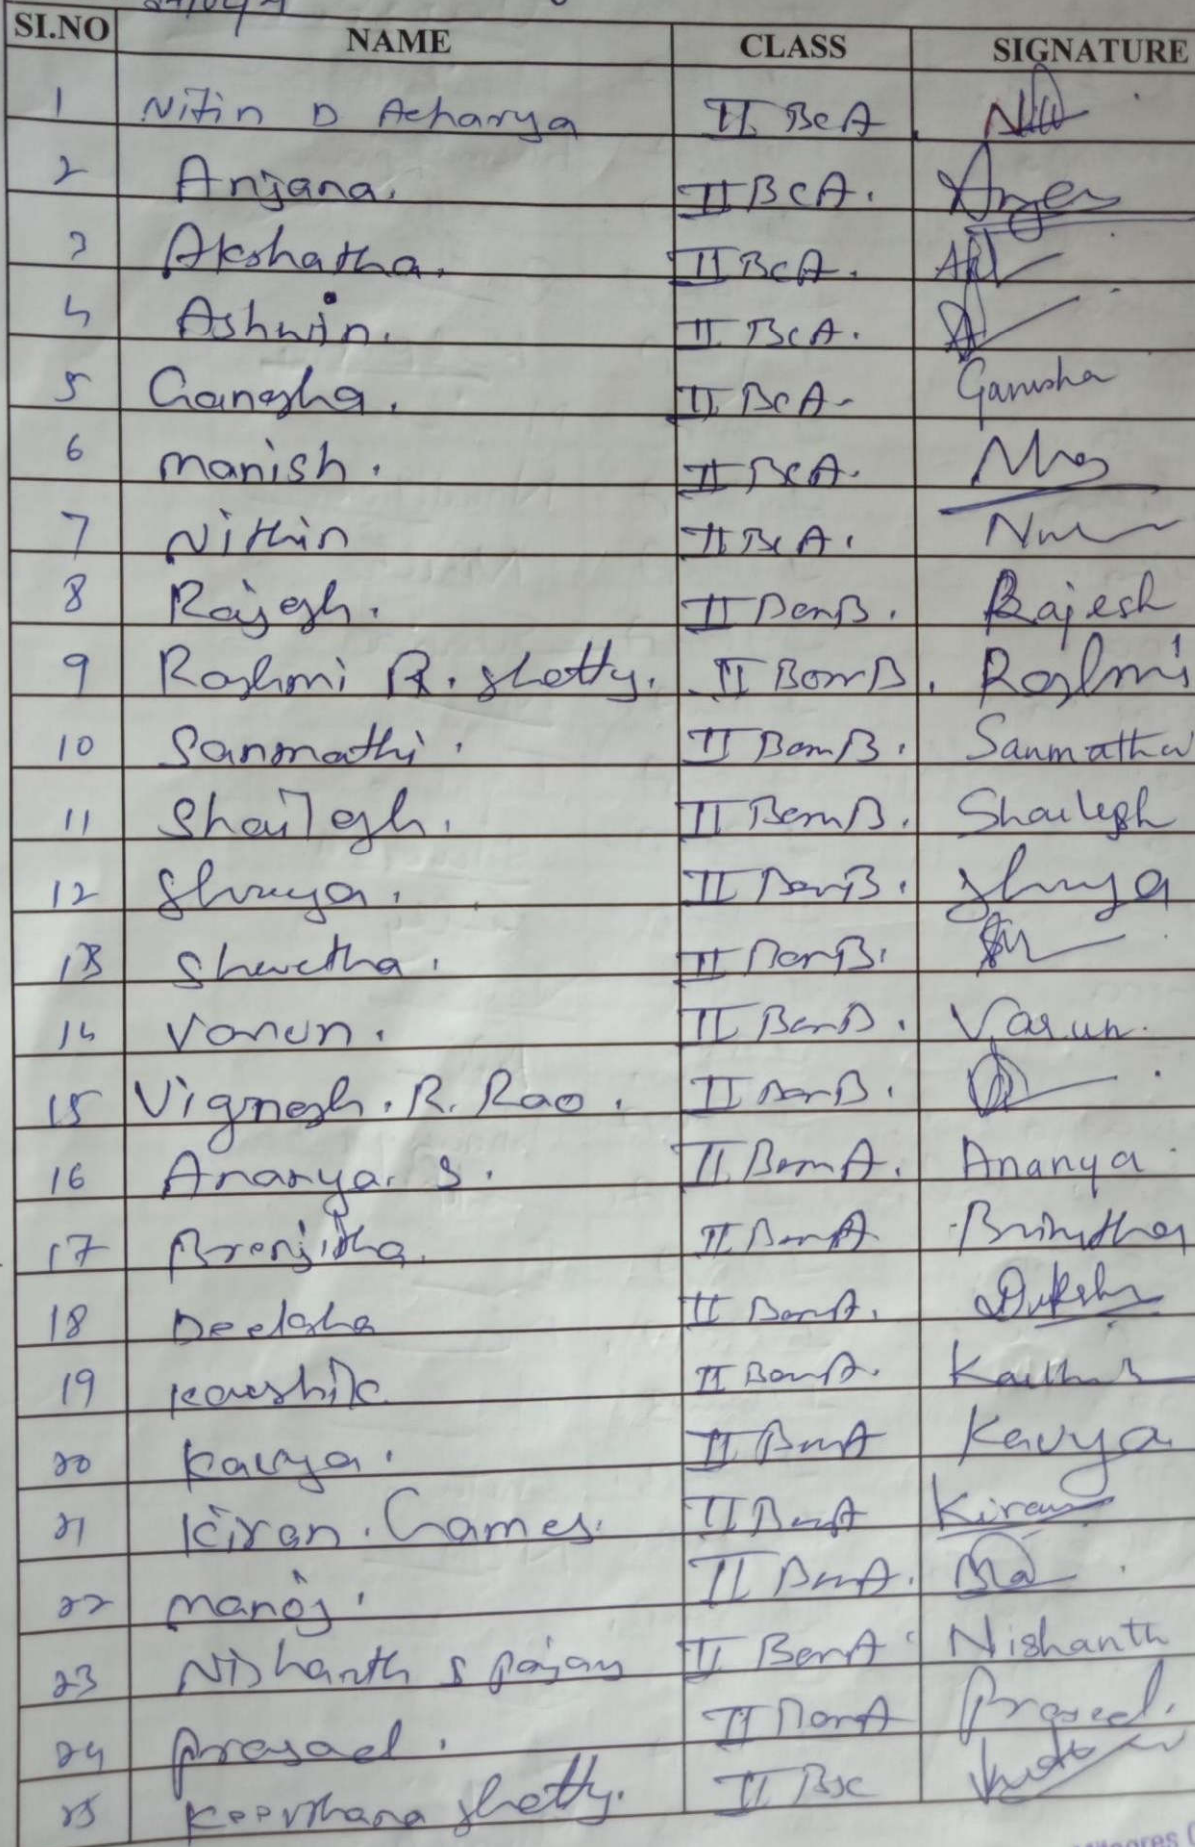 SI.NO NAME CLASS SIGNATURE
1 Nitin D Acharya II BCA
2 Anjana. II BCA.
3 Akshatha. II BCA.
4 Ashwin. II BCA.
5 Ganesha. II BCA- Ganesha
6 Manish. II BCA.
7 Nithin II BCA.
8 Rajesh. II Bcom B. Rajesh
9 Rashmi R. Shetty. II Bcom B. Rashmi
10 Sanmathi. II Bcom B. Sanmathi
11 Shailesh. II Bcom B. Shailesh
12 Shreya. II Bcom B. Shreya
13 Shwetha. II Bcom B.
14 Varun. II Bcom B. Varun.
15 Vignesh. R. Rao. II Bcom B.
16 Ananya. S. II Bcom A. Ananya
17 II Bcom A
18 Deeksha II Bcom A.
19 Kaushik II Bcom A.
20 Kavya. II Bcom A Kavya
21 Kiran. II Bcom A Kiran
22 Manoj. II Bcom A.
23 Nishanth S II Bcom A Nishanth
24 Prasad. II Bcom A Prasad.
25 Keerthana Shetty. II Bsc